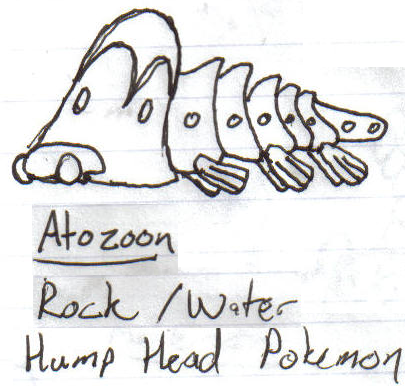 Atozoon
Rock / Water
Hump Head Pokemon